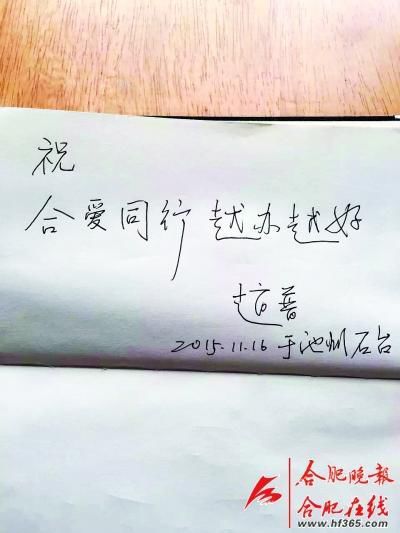 祝
合爱同行 越办越好
赵普
2015.11.16 于池州石台
合肥晚报
合肥在线
www.hf365.com